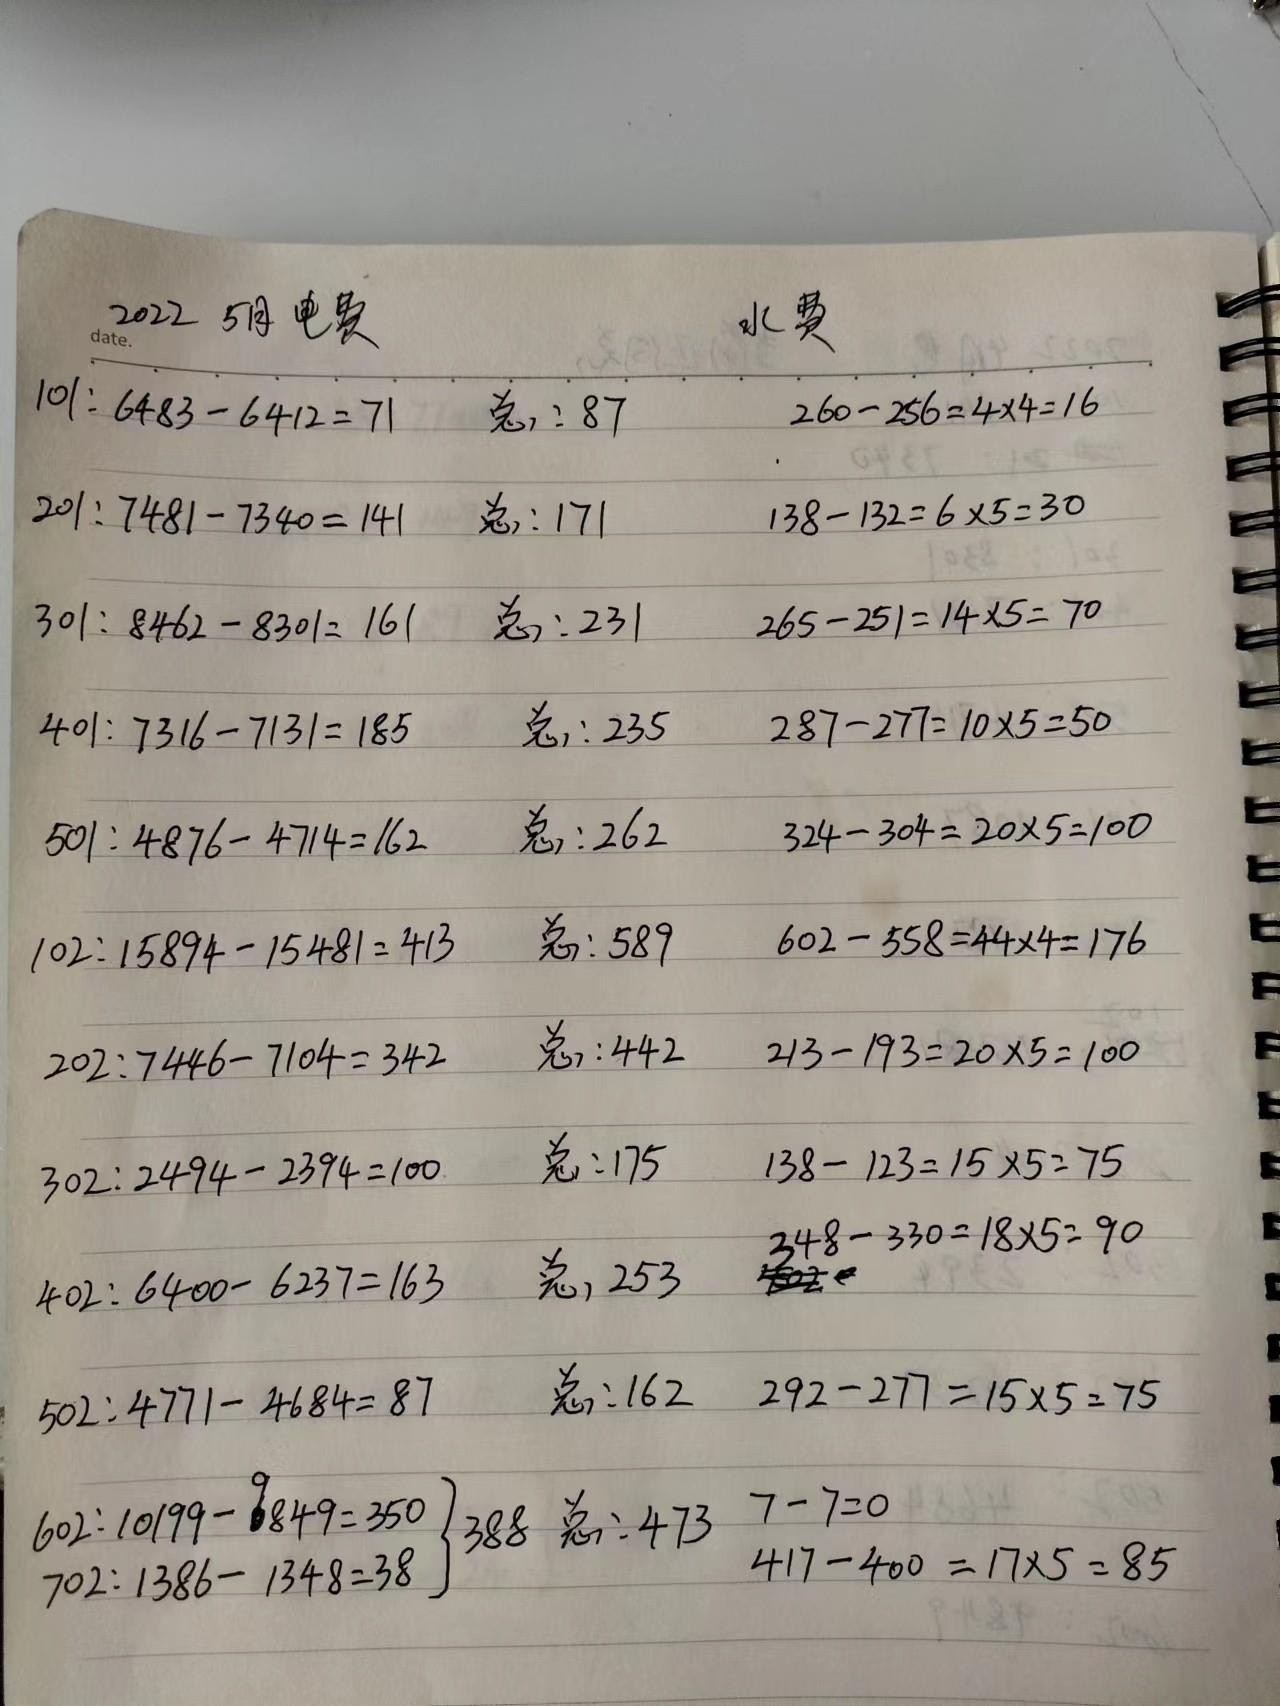 2022 5月电费 水费
date.
101: 6483-6412=71 总: 87 260-256=4×4=16
201: 7481-7340=141 总: 171 138-132=6×5=30
301: 8462-8301=161 总: 231 265-251=14×5=70
401: 7316-7131=185 总: 235 287-277=10×5=50
501: 4876-4714=162 总: 262 324-304=20×5=100
102: 15894-15481=413 总: 589 602-558=44×4=176
202: 7446-7104=342 总: 442 213-193=20×5=100
302: 2494-2394=100 总: 175 138-123=15×5=75
402: 6400-6237=163 总, 253 348-330=18×5=90
502: 4771-4684=87 总: 162 292-277=15×5=75
602: 10199-9849=350 } 388 总: 473 7-7=0
702: 1386-1348=38 417-400=17×5=85